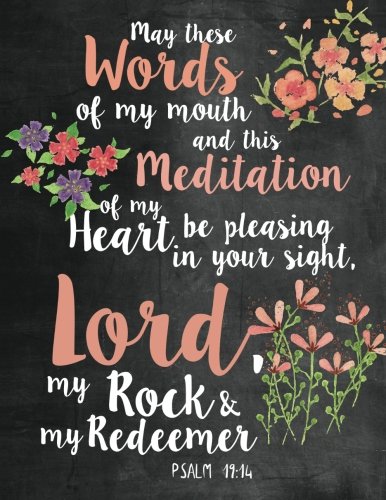 May these
Words
of my mouth
and this
Meditation
of my
Heart be pleasing
in your sight,
Lord,
my Rock &
my Redeemer
PSALM 19:14